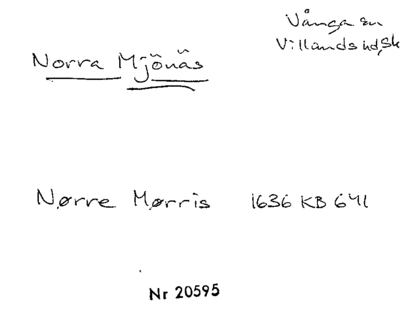 Vånga sn
Villands hd, Sk
Norra Mjönäs
Nørre Mørris 1636 KB 641
Nr 20595